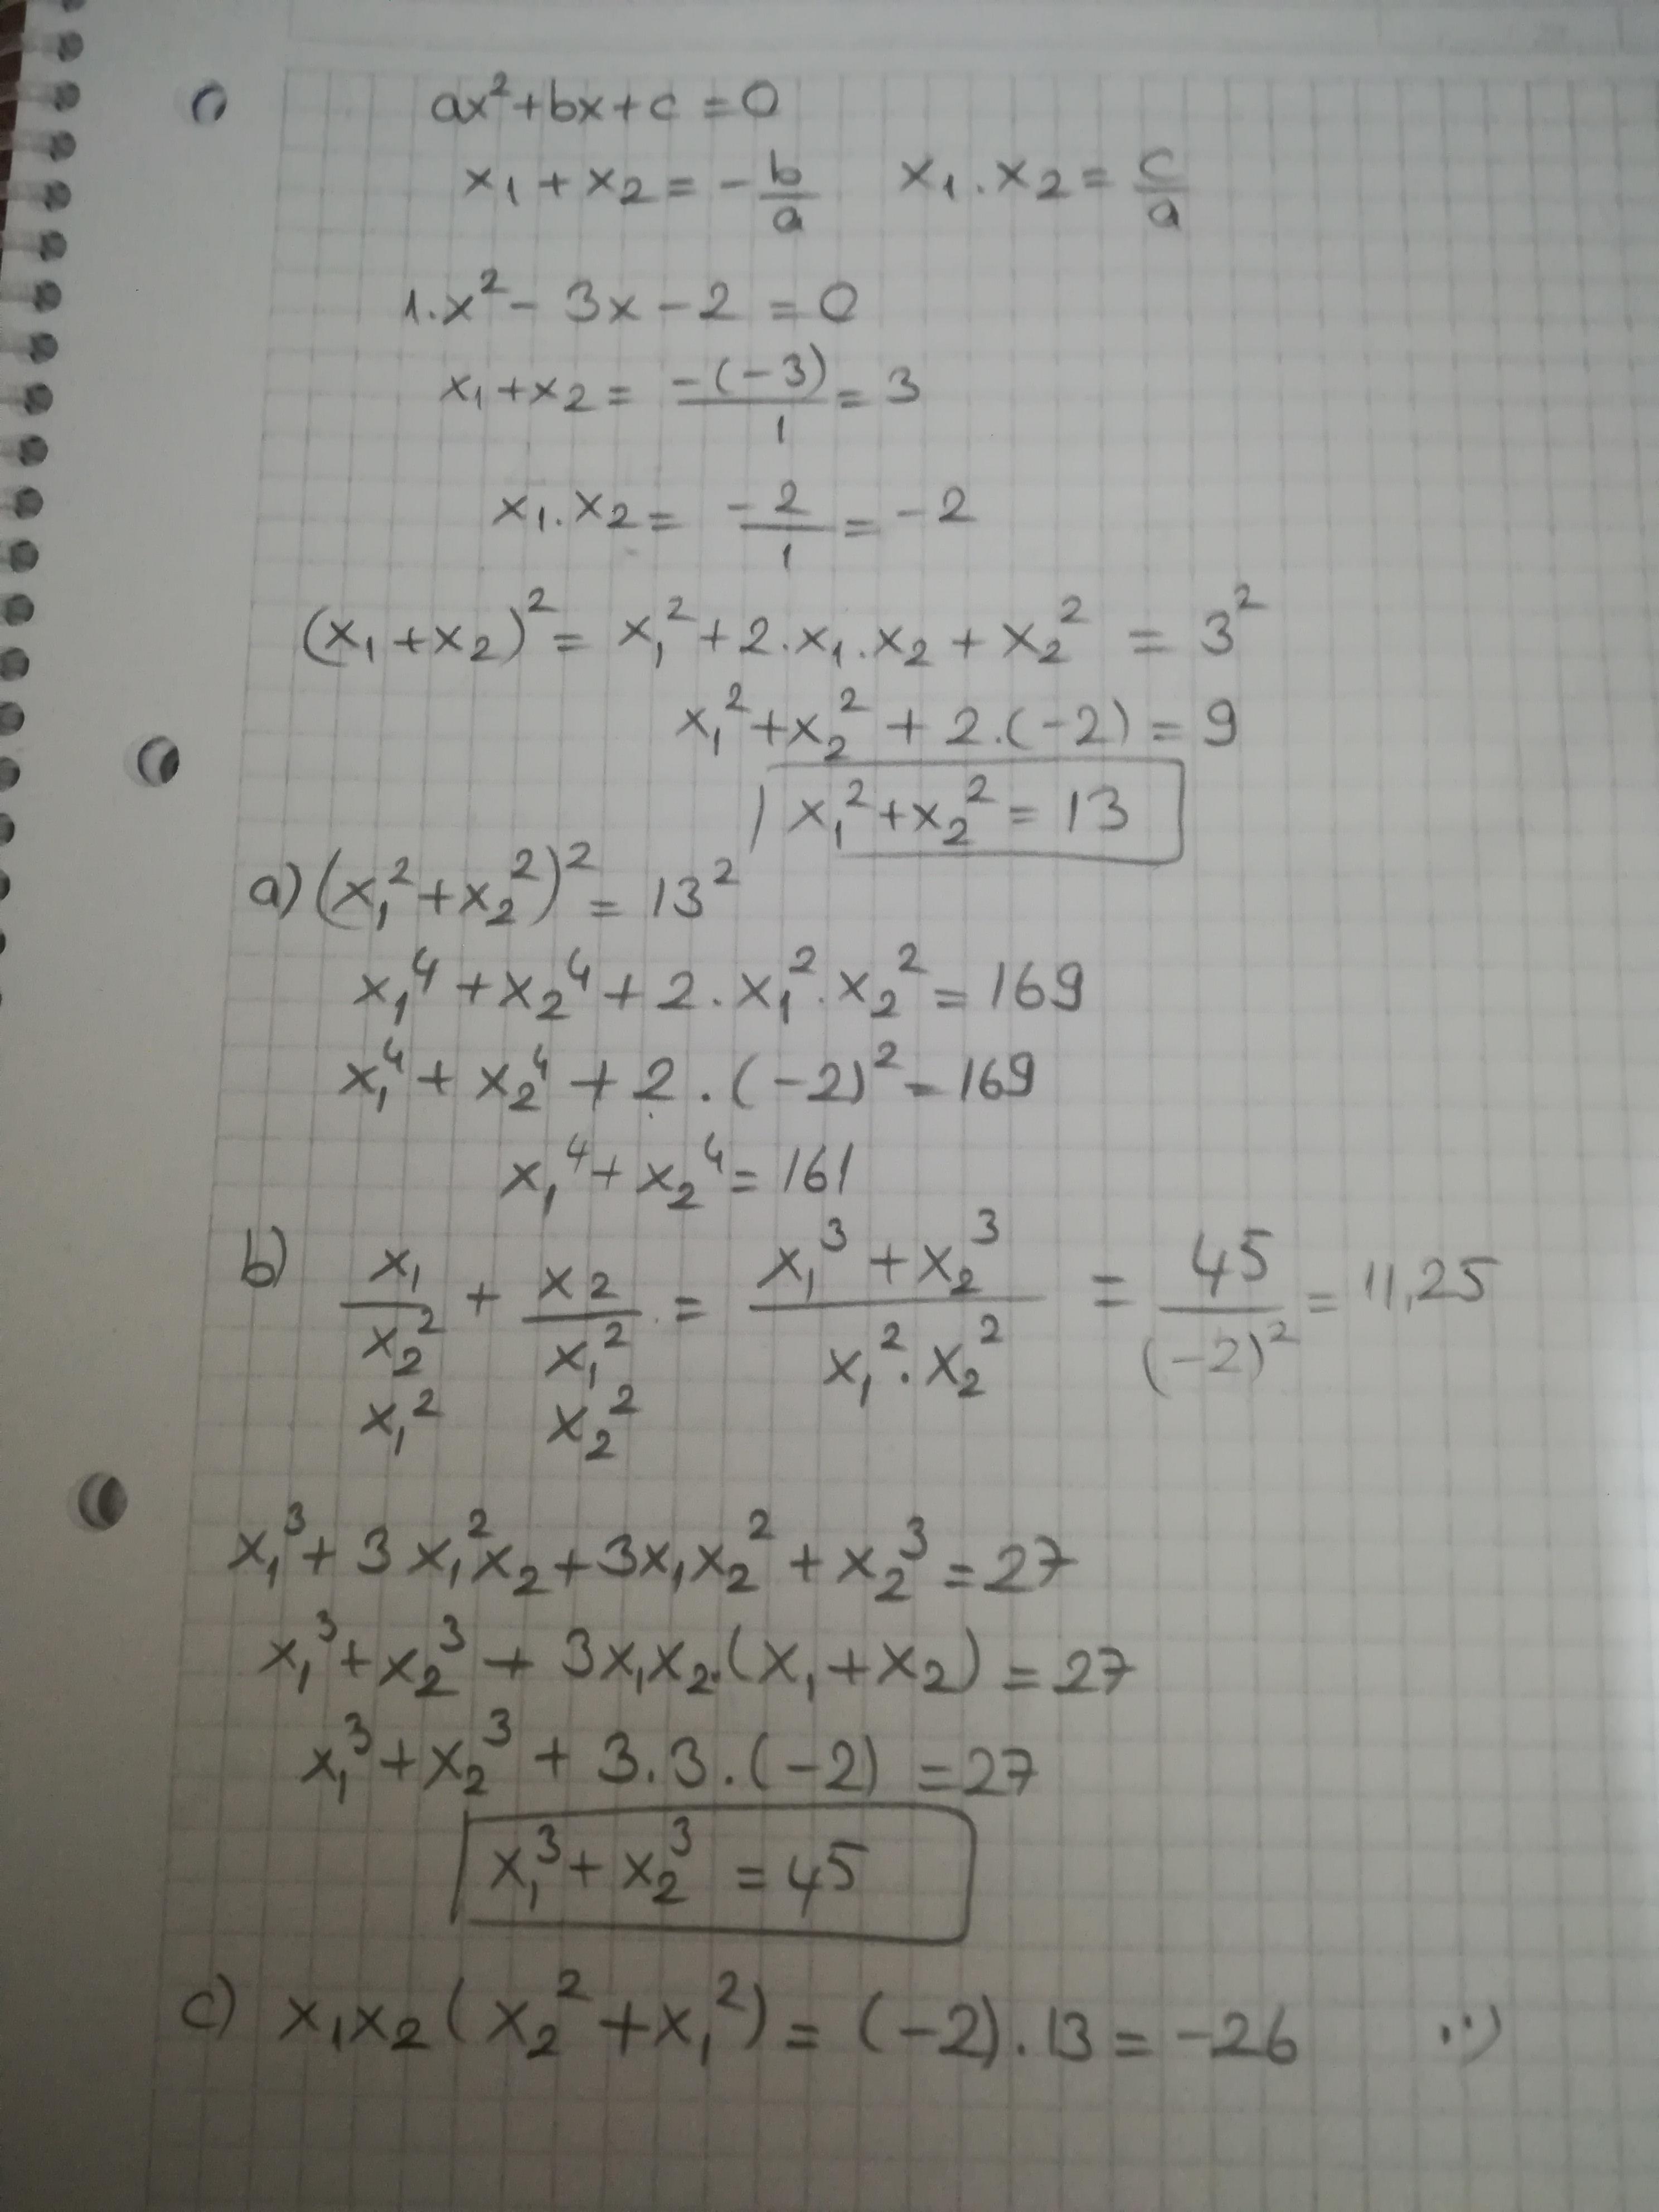 ax²+bx+c=0
x₁+x₂=-b/a x₁.x₂=c/a
1.x²-3x-2=0
x₁+x₂=-(-3)/1=3
x₁.x₂=-2/1=-2
(x₁+x₂)²=x₁²+2.x₁.x₂+x₂²=3²
x₁²+x₂²+2.(-2)=9
x₁²+x₂²=13
a) (x₁²+x₂²)²=13²
x₁⁴+x₂⁴+2.x₁².x₂²=169
x₁⁴+x₂⁴+2.(-2)²=169
x₁⁴+x₂⁴=161
b) x₁/x₂²+x₂/x₁²=(x₁³+x₂³)/(x₁².x₂²)=45/(-2)²=11,25
x₁² x₂²
x₁³+3x₁²x₂+3x₁x₂²+x₂³=27
x₁³+x₂³+3x₁x₂.(x₁+x₂)=27
x₁³+x₂³+3.3.(-2)=27
x₁³+x₂³=45
c) x₁x₂(x₂²+x₁²)=(-2).13=-26 :)